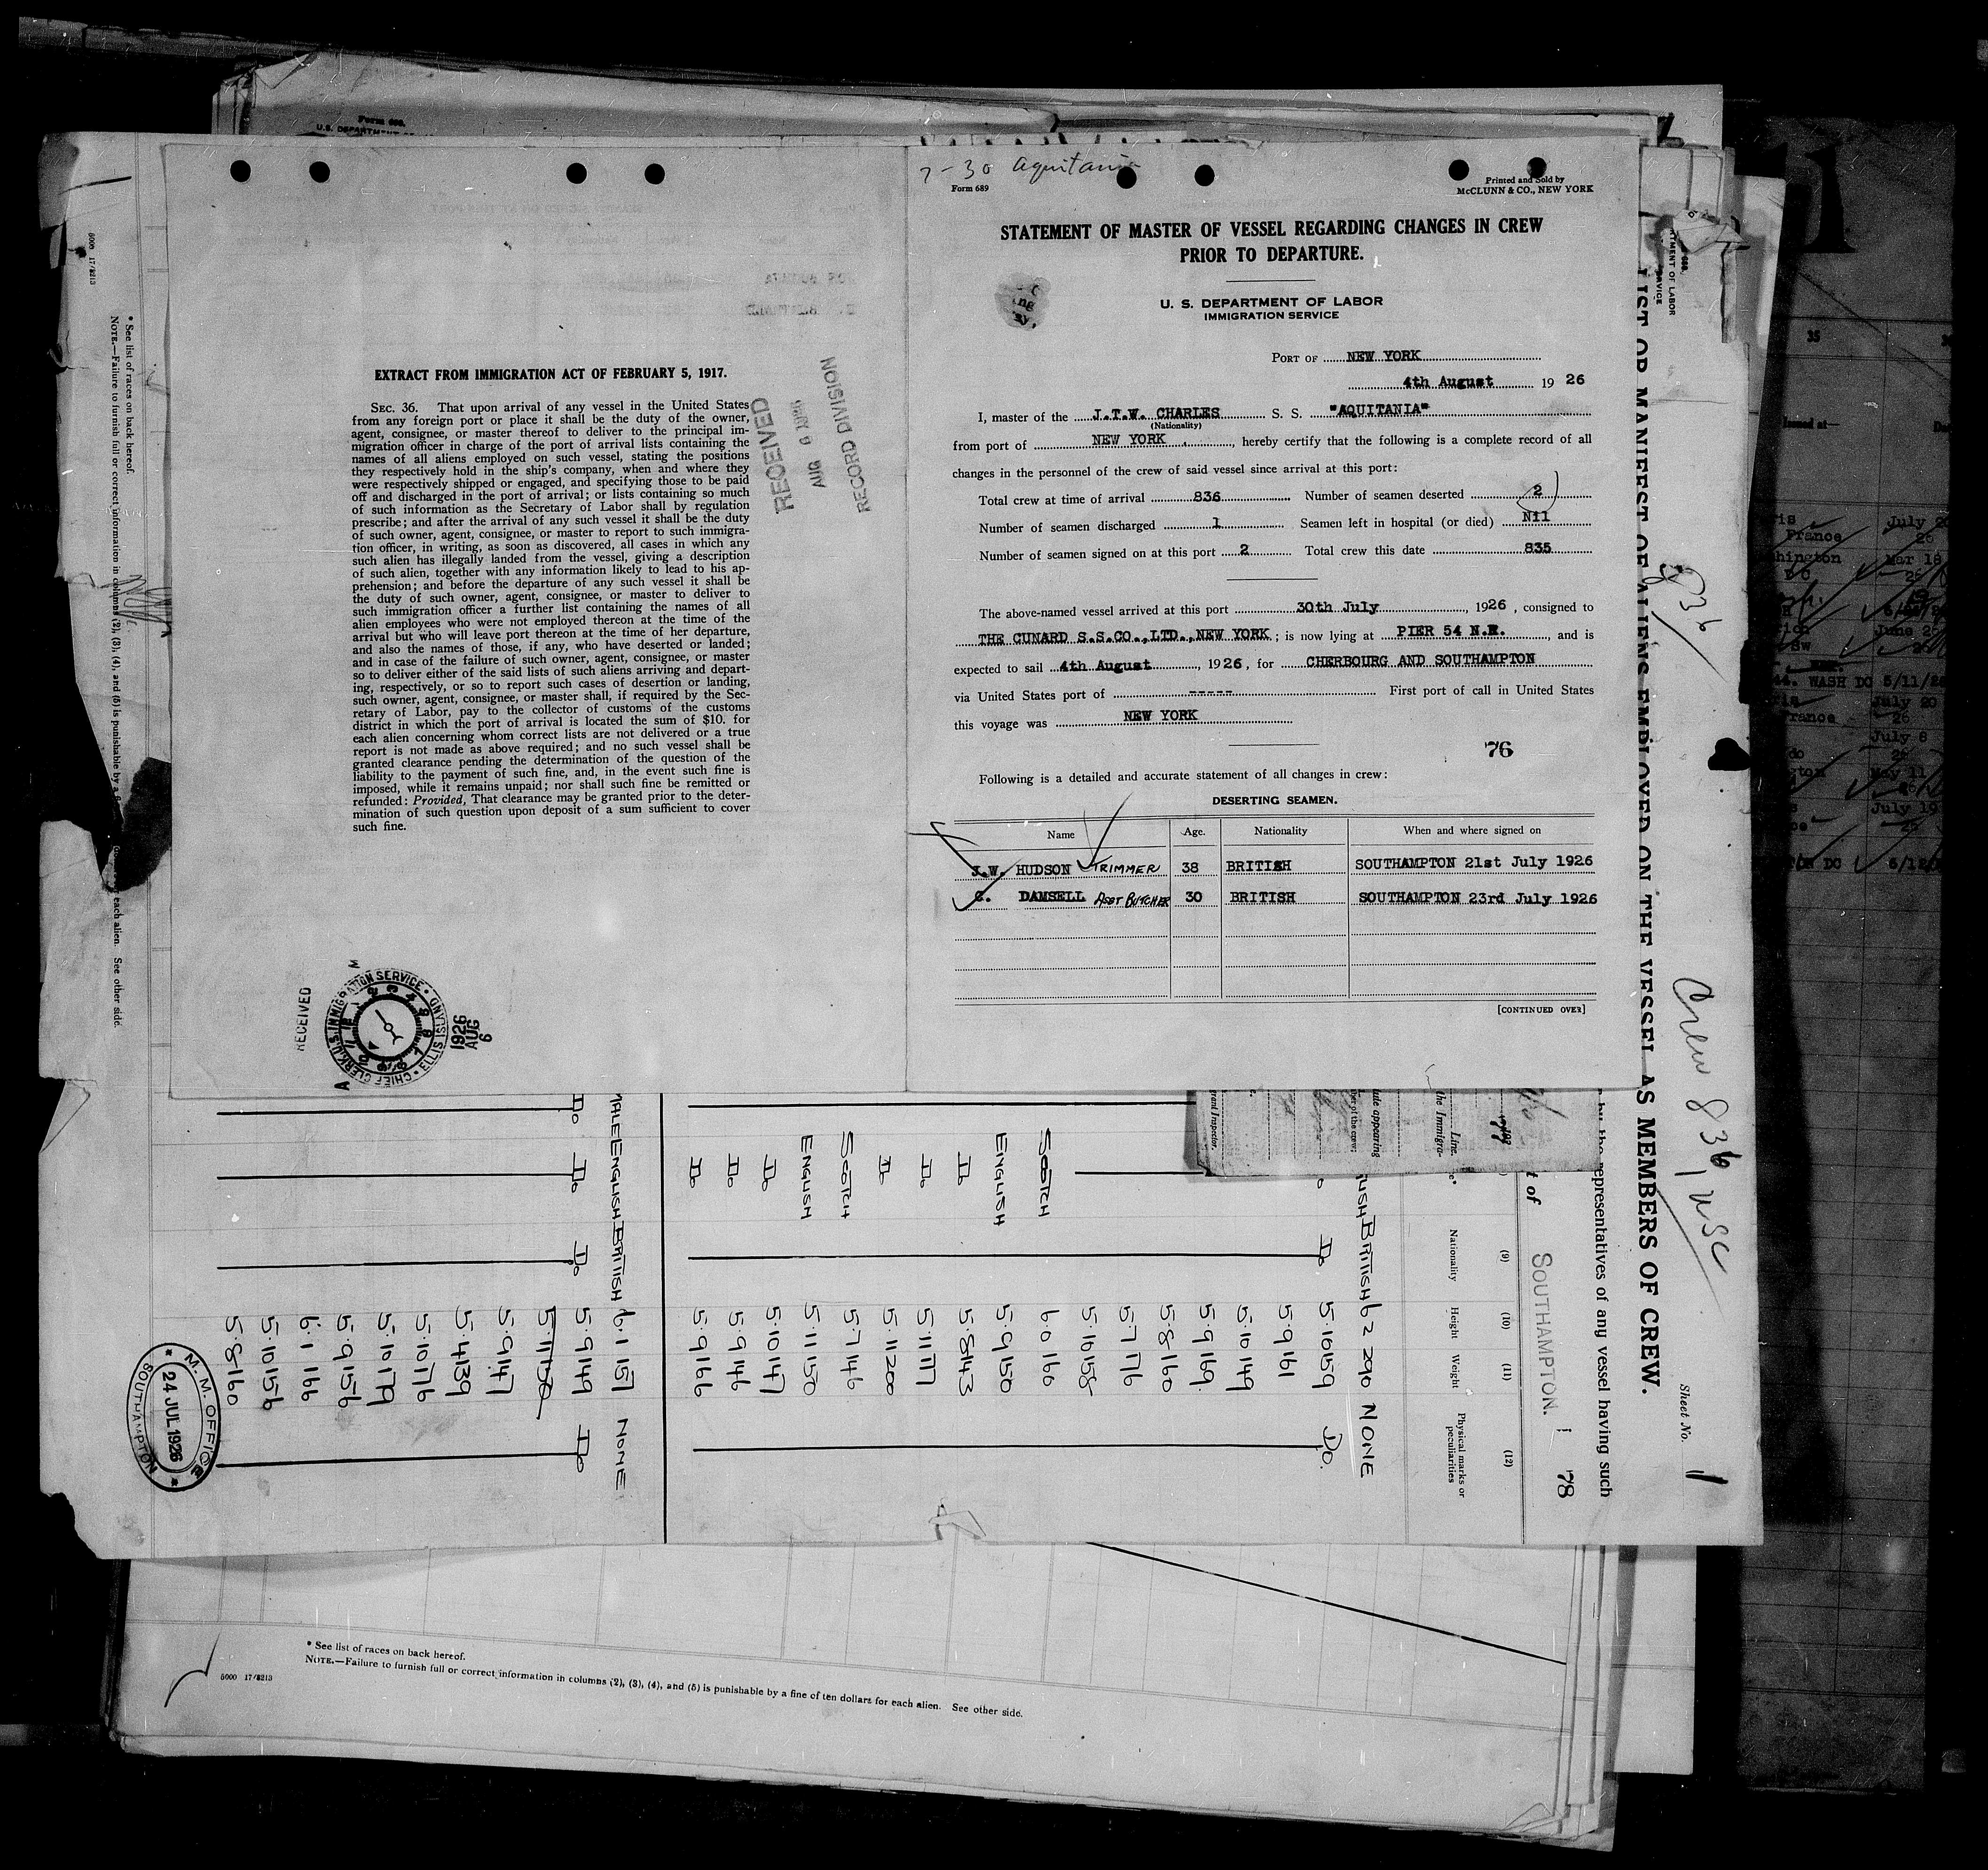 Form 688.
U.S. DEPARTMENT OF
EXTRACT FROM IMMIGRATION ACT OF FEBRUARY 5, 1917.
SEC. 36. That upon arrival of any vessel in the United States
from any foreign port or place it shall be the duty of the owner,
agent, consignee, or master thereof to deliver to the principal im-
migration officer in charge of the port of arrival lists containing the
names of all aliens employed on such vessel, stating the positions
they respectively hold in the ship's company, when and where they
were respectively shipped or engaged, and specifying those to be paid
off and discharged in the port of arrival; or lists containing so much
of such information as the Secretary of Labor shall by regulation
prescribe; and after the arrival of any such vessel it shall be the duty
of such owner, agent, consignee, or master to report to such immigra-
tion officer, in writing, as soon as discovered, all cases in which any
such alien has illegally landed from the vessel, giving a description
of such alien, together with any information likely to lead to his ap-
prehension; and before the departure of any such vessel it shall be
the duty of such owner, agent, consignee, or master to deliver to
such immigration officer a further list containing the names of all
alien employees who were not employed thereon at the time of the
arrival but who will leave port thereon at the time of her departure,
and also the names of those, if any, who have deserted or landed;
and in case of the failure of such owner, agent, consignee, or master
so to deliver either of the said lists of such aliens arriving and depart-
ing, respectively, or so to report such cases of desertion or landing,
such owner, agent, consignee, or master shall, if required by the Sec-
retary of Labor, pay to the collector of customs of the customs
district in which the port of arrival is located the sum of $10. for
each alien concerning whom correct lists are not delivered or a true
report is not made as above required; and no such vessel shall be
granted clearance pending the determination of the question of the
liability to the payment of such fine, and, in the event such fine is
imposed, while it remains unpaid; nor shall such fine be remitted or
refunded: Provided, That clearance may be granted prior to the deter-
mination of such question upon deposit of a sum sufficient to cover
such fine.
RECEIVED
AUG 6 1926
RECORD DIVISION
RECEIVED
CHIEF CLERK, U.S. IMMIGRATION SERVICE · ELLIS ISLAND
1926
AUG
6
7-30 Aquitania
Form 689
Printed and Sold by
McCLUNN & CO., NEW YORK
STATEMENT OF MASTER OF VESSEL REGARDING CHANGES IN CREW
PRIOR TO DEPARTURE.
U. S. DEPARTMENT OF LABOR
IMMIGRATION SERVICE
PORT OF NEW YORK
4th August 19 26
I, master of the J.T.W. CHARLES S. S. "AQUITANIA"
(Nationality)
from port of NEW YORK , hereby certify that the following is a complete record of all
changes in the personnel of the crew of said vessel since arrival at this port:
Total crew at time of arrival 836 Number of seamen deserted 2
Number of seamen discharged 1 Seamen left in hospital (or died) Nil
Number of seamen signed on at this port 2 Total crew this date 835
The above-named vessel arrived at this port 30th July, 1926, consigned to
THE CUNARD S.S.CO.,LTD.,NEW YORK; is now lying at PIER 54 N.R., and is
expected to sail 4th August, 1926, for CHERBOURG AND SOUTHAMPTON
via United States port of ----- First port of call in United States
this voyage was NEW YORK
76
Following is a detailed and accurate statement of all changes in crew:
DESERTING SEAMEN.
Name Age. Nationality When and where signed on
J.W. HUDSON TRIMMER 38 BRITISH SOUTHAMPTON 21st July 1926
C. DAMSELL ASST BUTCHER 30 BRITISH SOUTHAMPTON 23rd July 1926
[CONTINUED OVER]
LIST OR MANIFEST OF ALIENS EMPLOYED ON THE VESSEL AS MEMBERS OF CREW.
836
Crew 836
1 USC
Sheet No. 1
representatives of any vessel having such
SOUTHAMPTON.
78
77
(9) Nationality
(10) Height
(11) Weight
(12) Physical marks or peculiarities
BRITISH 6 2 290 NONE
Do 5·10 159 Do.
5·9 161
5·10 149
5·9 169
5·8 160
5·7 176
5·10 158
SCOTCH 6 0 166
ENGLISH 5·9 150
Do 5·8 143
Do 5·11 177
Do 5·11 200
SCOTCH 5·7 146
ENGLISH 5·11 150
Do 5·10 147
Do 5·9 146
Do 5·9 166
MALE ENGLISH BRITISH 6·1 157 NONE
Do Do Do 5·9 149 Do
5·11 150
5·9 147
5·4 139
5·10 176
5·10 179
5·9 156
6·1 166
5·10 156
5·8 160
M. M. OFFICE
24 JUL 1926
SOUTHAMPTON
5000 17/8213
* See list of races on back hereof.
NOTE.—Failure to furnish full or correct information in columns (2), (3), (4), and (5) is punishable by a
each alien. See other side.
5000 17/8213
* See list of races on back hereof.
NOTE.—Failure to furnish full or correct information in columns (2), (3), (4), and (5) is punishable by a fine of ten dollars for each alien. See other side.
35
Issued at—
July 20
France 26
Mar 18
June 25
WASH DC 5/11/26
July 20
France 26
July 8
May 11
July 19